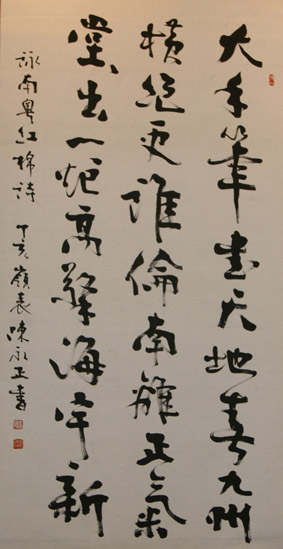 大手筆書天地春九州
橫絕更誰倫南離正氣
堂々出一炬高擎海宇新
詠南粵紅棉詩 丁亥嶺表陳永正書